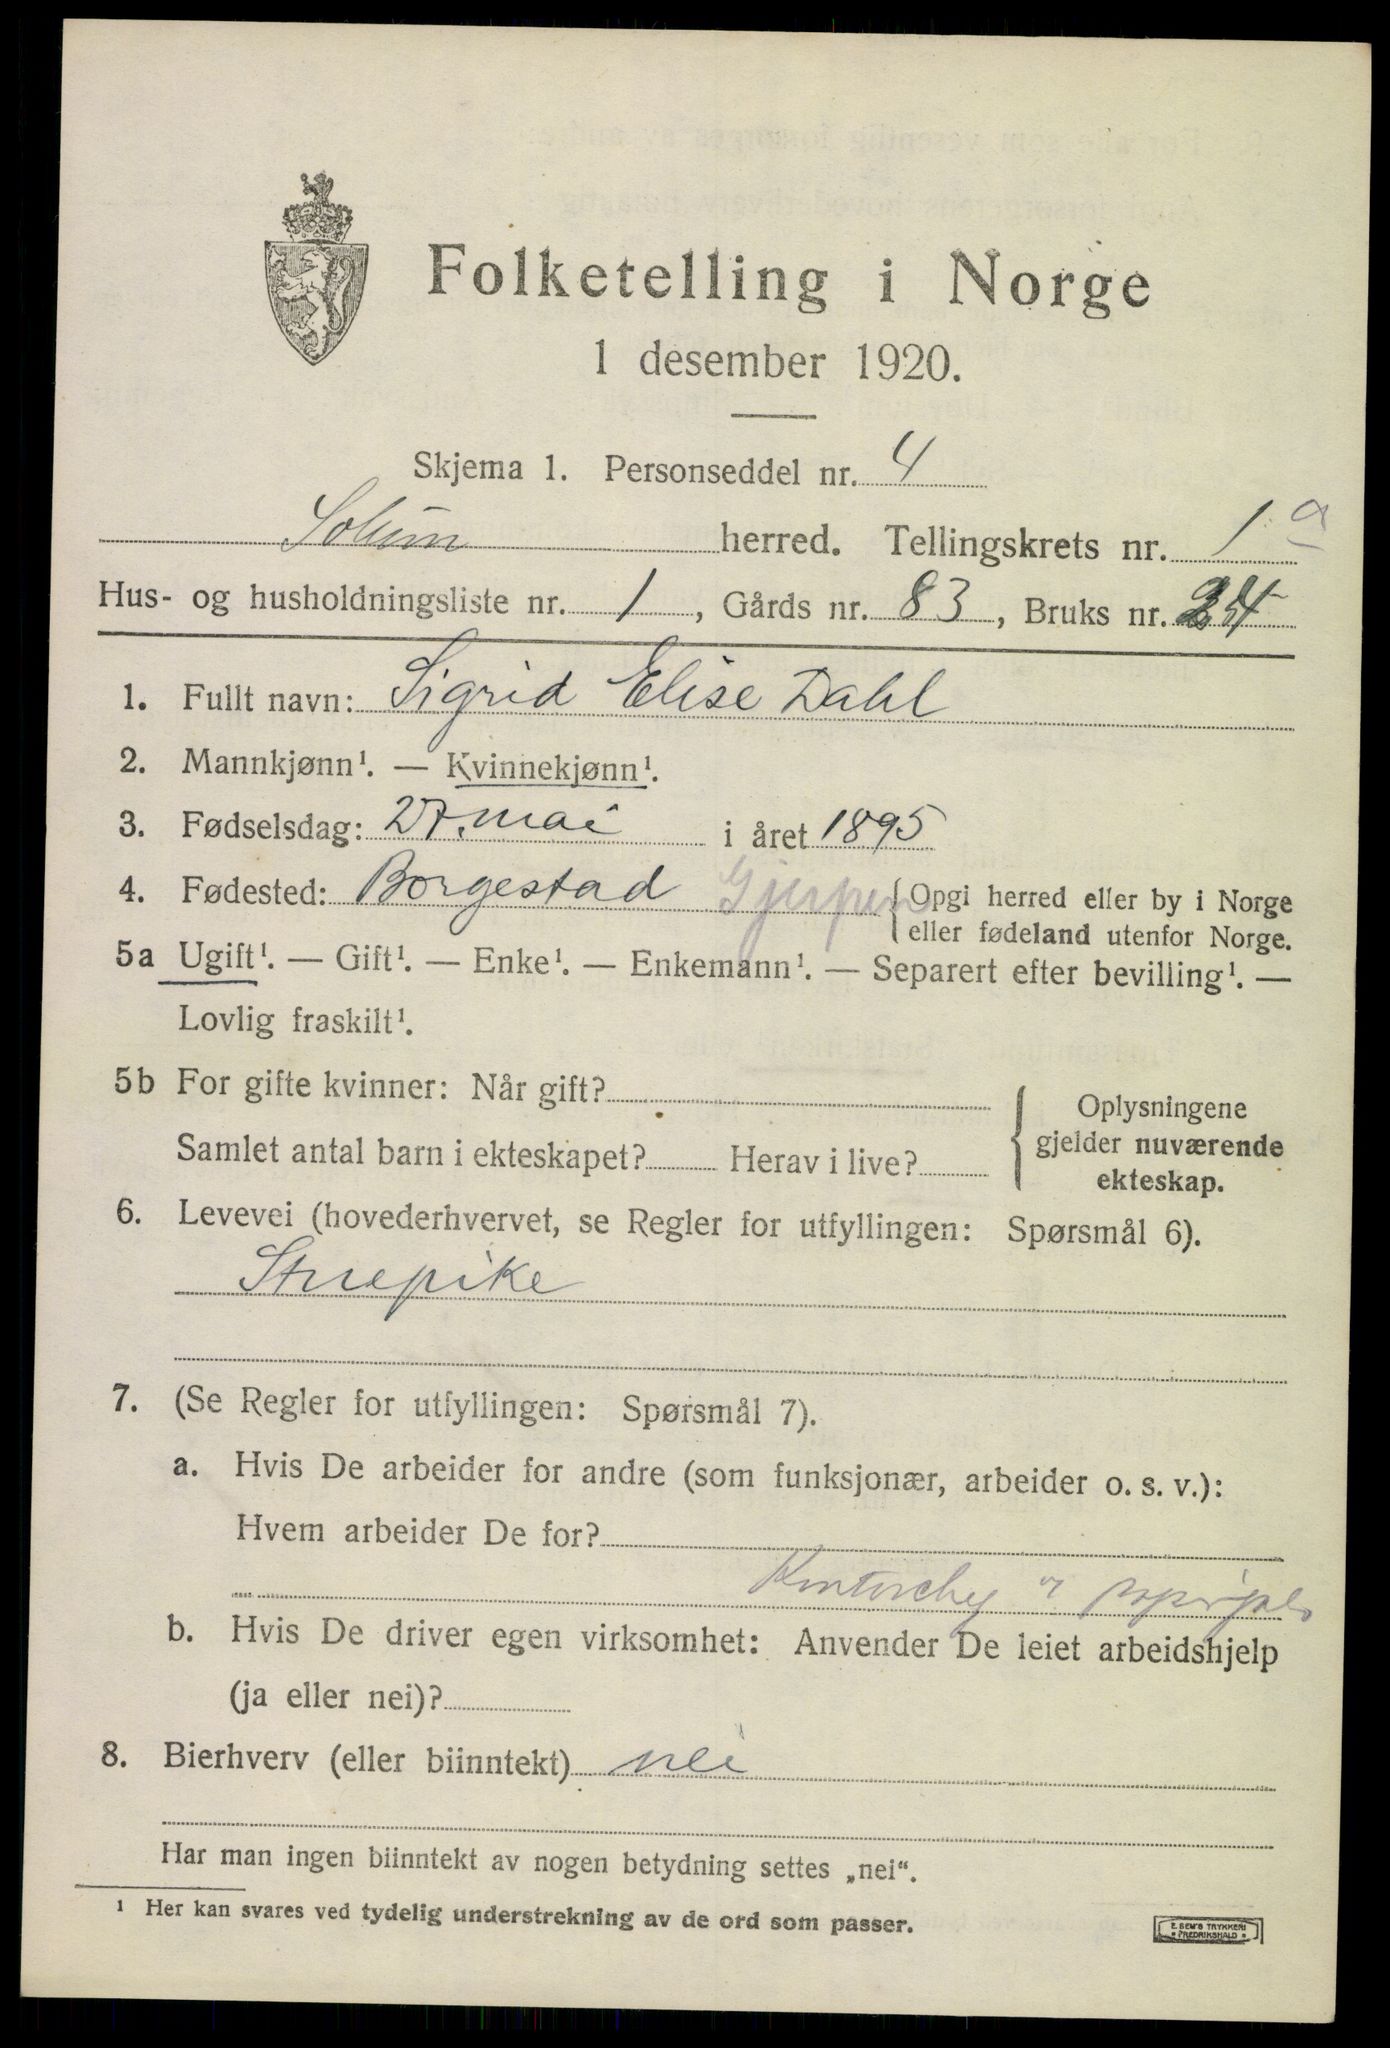 Folketelling i Norge
1 desember 1920.
Skjema 1. Personseddel nr. 4
Solum herred. Tellingskrets nr. 1 a
Hus- og husholdningsliste nr. 1, Gårds nr. 83, Bruks nr.
1. Fullt navn: Sigrid Elise Dahl
2. Mannkjønn¹. — Kvinnekjønn¹.
3. Fødselsdag: 27. mai i året 1895
4. Fødested: Borgestad Gjerpen {Opgi herred eller by i Norge
eller fødeland utenfor Norge.
5a Ugift¹. — Gift¹. — Enke¹. — Enkemann¹. — Separert efter bevilling¹. —
Lovlig fraskilt¹.
5b For gifte kvinner: Når gift?
Samlet antal barn i ekteskapet? Herav i live?
{ Oplysningene
gjelder nuværende
ekteskap.
6. Levevei (hovederhvervet, se Regler for utfyllingen: Spørsmål 6).
Stuepike
7. (Se Regler for utfyllingen: Spørsmål 7).
a. Hvis De arbeider for andre (som funksjonær, arbeider o. s. v.):
Hvem arbeider De for?
b. Hvis De driver egen virksomhet: Anvender De leiet arbeidshjelp
(ja eller nei)?
8. Bierhverv (eller biinntekt) nei
Har man ingen biinntekt av nogen betydning settes „nei“.
¹ Her kan svares ved tydelig understrekning av de ord som passer.
E. SEM'S TRYKKERI
* FREDRIKSHALD *